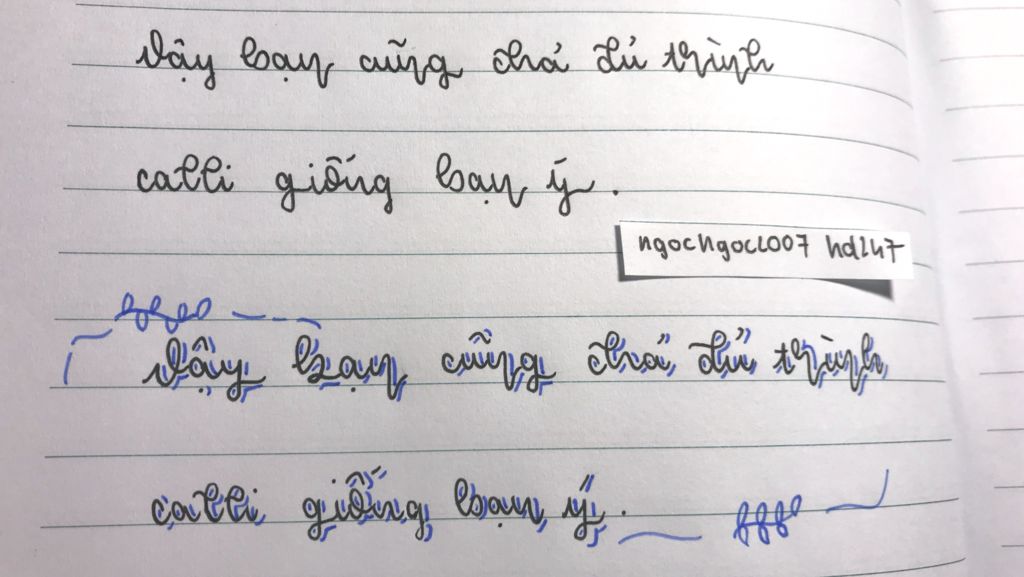 Vậy bạn cũng chả đủ trình
calli giống bạn ý.
ngocngoc2007 hd247
Vậy bạn cũng chả đủ trình
calli giống bạn ý.